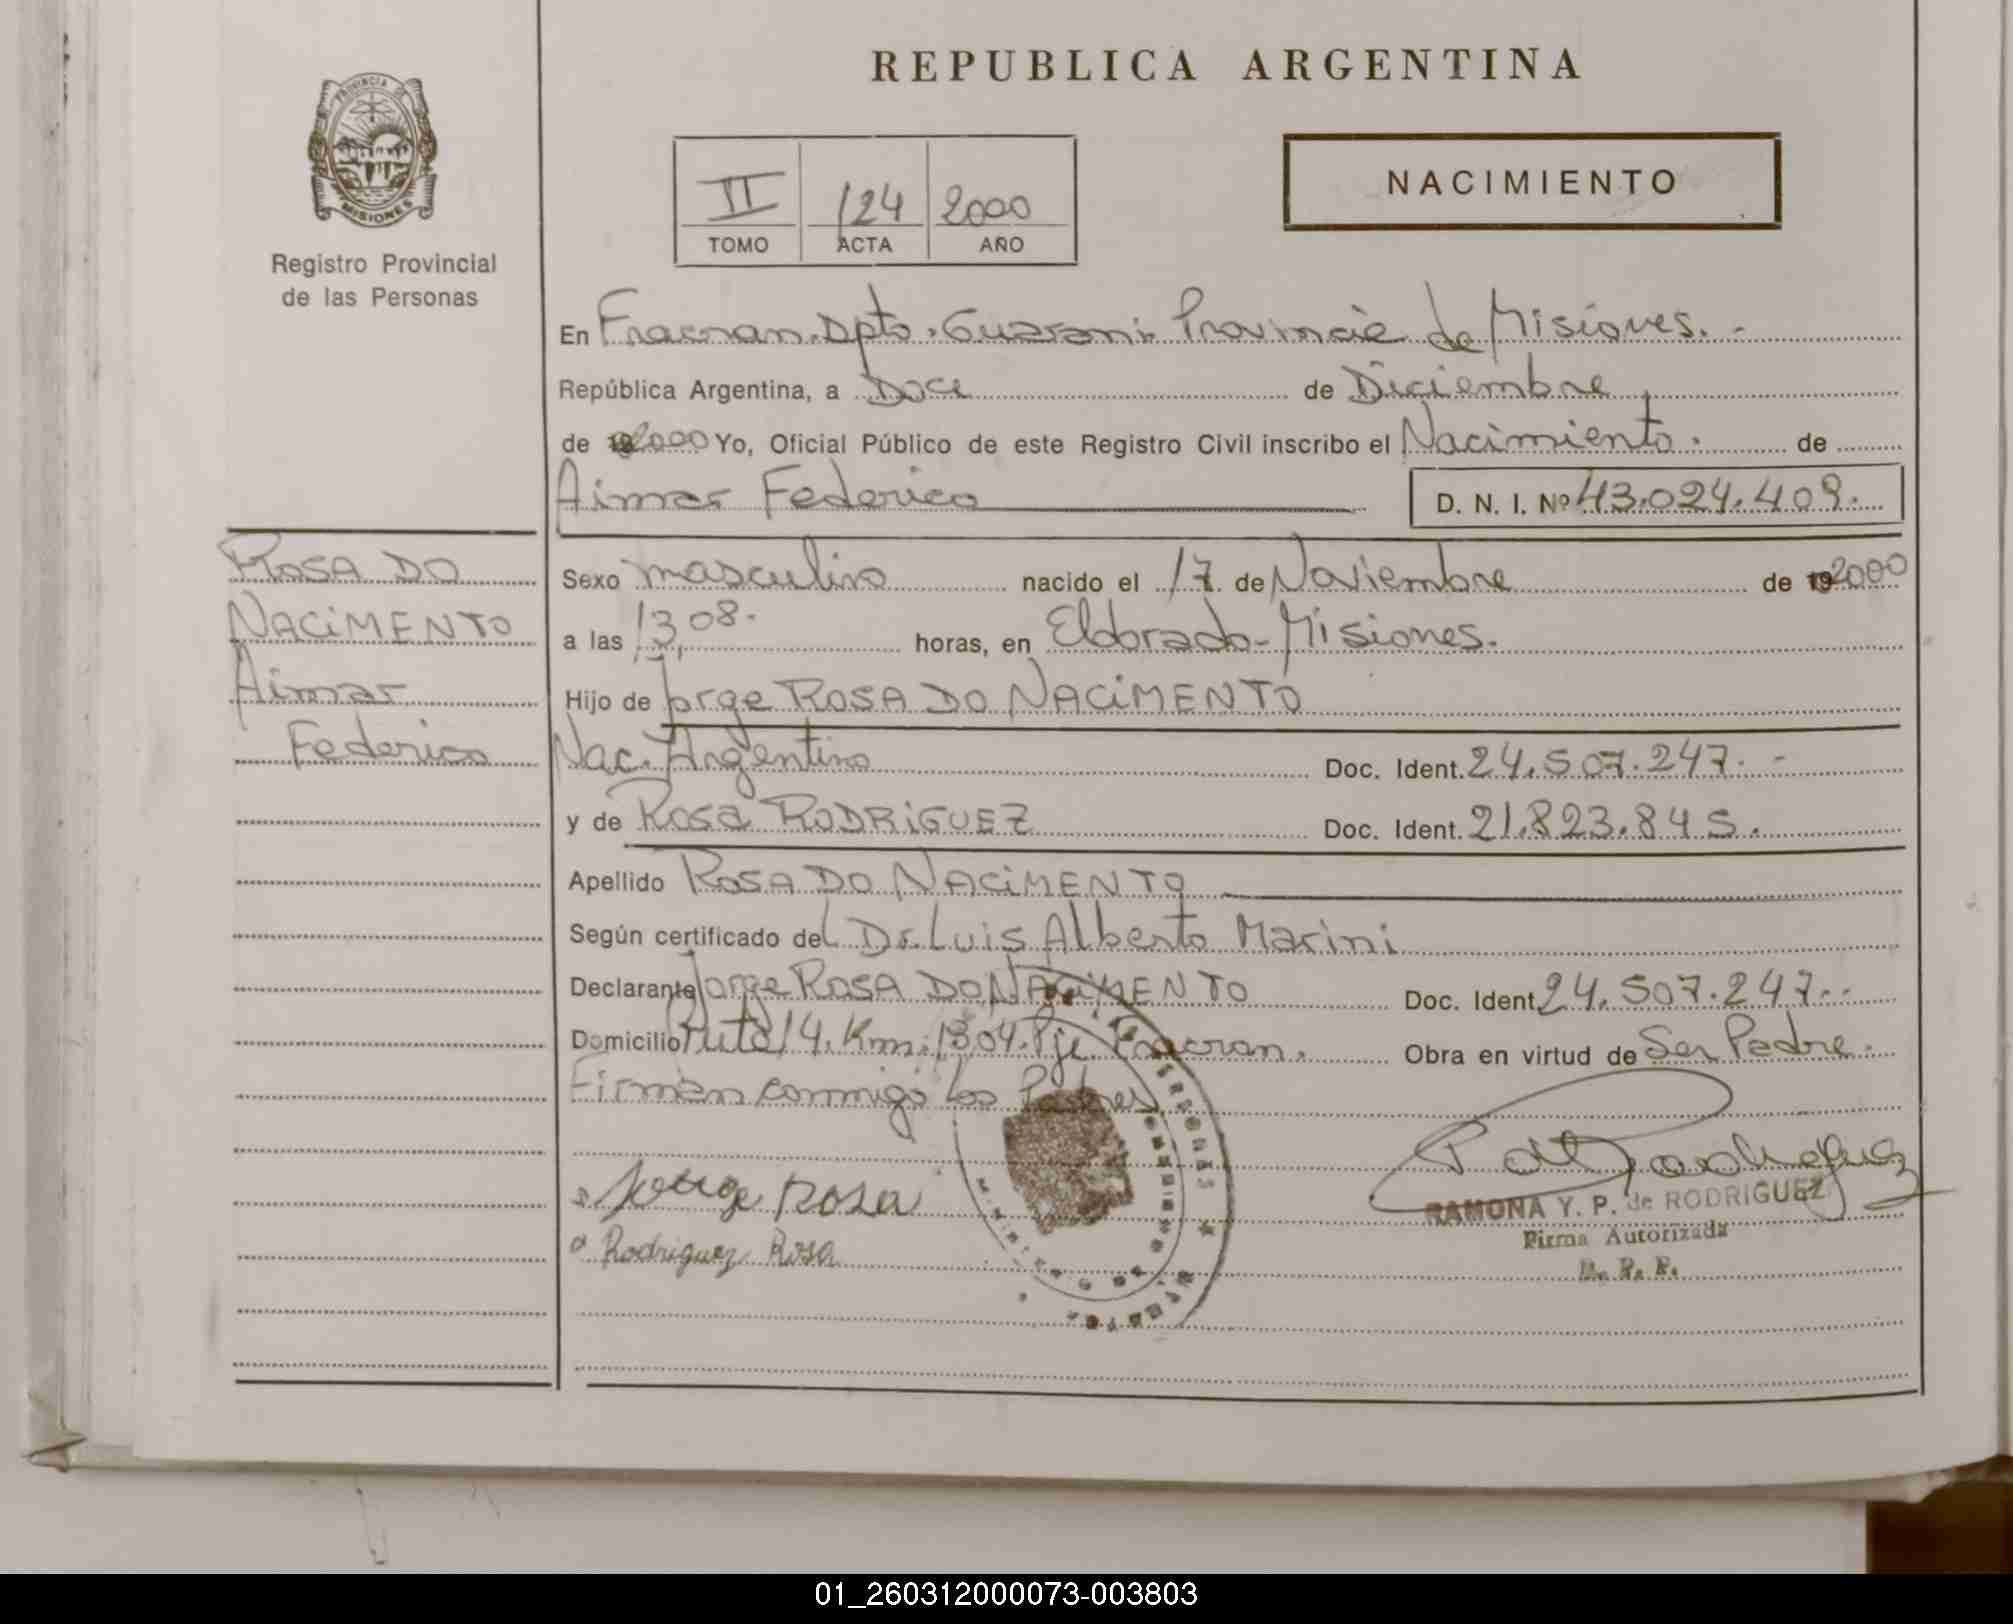 REPUBLICA ARGENTINA
PROVINCIA DE
MISIONES
Registro Provincial
de las Personas
II 124 2000
TOMO ACTA AÑO
NACIMIENTO
En Fracran. Dpto. Guarani. Provincia de Misiones. -
República Argentina, a Doce de Diciembre
de 2000 Yo, Oficial Público de este Registro Civil inscribo el Nacimiento. de
Aimar Federico D. N. I. Nº 43.024.409.
ROSA DO
NACIMENTO
Aimar
Federico
Sexo masculino nacido el 17 de Noviembre de 2000
a las 13,08. horas, en Eldorado - Misiones.
Hijo de Jorge ROSA DO NACIMENTO
Nac. Argentino Doc. Ident. 24.507.247. -
y de Rosa RODRIGUEZ Doc. Ident. 21.823.845.
Apellido ROSA DO NACIMENTO
Según certificado del Dr. Luis Alberto Marini
Declarante Jorge ROSA DO NACIMENTO Doc. Ident. 24.507.247..
Domicilio Ruta 14. Km. 1304. Pje. Fracran. Obra en virtud de Ser Padre.
Firman conmigo los Padres
Jorge Rosa
Rodriguez Rosa
RAMONA Y. P. de RODRIGUEZ
Firma Autorizada
01_260312000073-003803